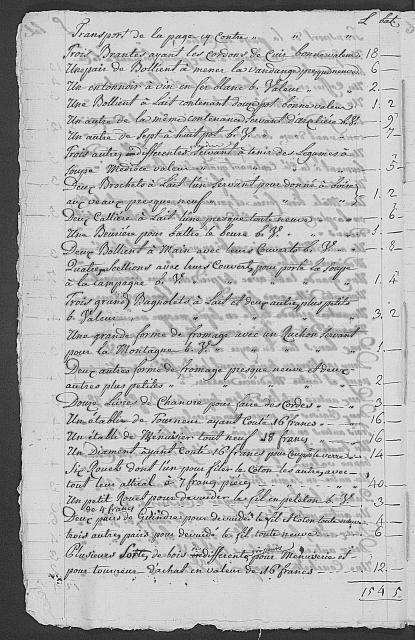 L. bat.
Transport de la page cy Contre " " "
Trois Brantes ayant les Cordons de Cuir bonne valeur 18 —
Une paire de Bollient à mener la Vandange presque neuve 6 —
Un entonnoir à vin en fer blanc b. Valeur " 2 —
Une Bollient à Lait contenant douze pot bonne valeur 1. 2
Un autre de la même contenance Servant b. V. " 9
Un autre de Sept à huit pot b. V. " " 7
Trois autres indifferentes Servant à tenir des Legumes à
Soupe Mediocre valeur " " 5
Deux Brochets à Lait l'un Servant pour donné à boire
aux veaux presque neuf " " 1. 2
Deux à Lait une presque toute neuve " 6
Une Beurière pour battre le beure b. V. " 1 —
Deux Bollient à Main avec leurs Couverts b. V. " 8
Quatre Seillions avec leurs Couverts pour porté la Soupe
à la campagne b. V. " " 1. 4
Trois grand Bagnolets à Lait et deux autres plus petits
b. Valeur " " " 3. 2
Une grande forme de fromage avec un Servant
pour la Montagne b. V. " " 1 —
Deux autres forme de fromage presque neuve et deux
autres plus petites " " " 2 —
Douze Livres de Chanvre pour faire des Cordes " 3 —
Un établi de Tourneur ayant Couté 16 francs " 16 —
Un établi de Menuisier tout neuf 18 francs 16 —
Un Diament ayant Couté 16 francs pour Coupé le verre 14 —
Six Rouets dont l'un pour filer le Coton les autres avec
tout leur attirail à 7 francs pièces 40 —
Un petit Rouet pour devuider le fil en peleton b. V. 3 —
de 4 francs
Deux paires de pour devuider le fil et Coton toute neuve 4 —
trois autres pairs pour devuidé le fil toute neuve 6 —
Plusieurs Sortes de bois indifferents pour Menuiserie et
pour tourneur d'achat en valeur de 16 francs 12 —
154 5